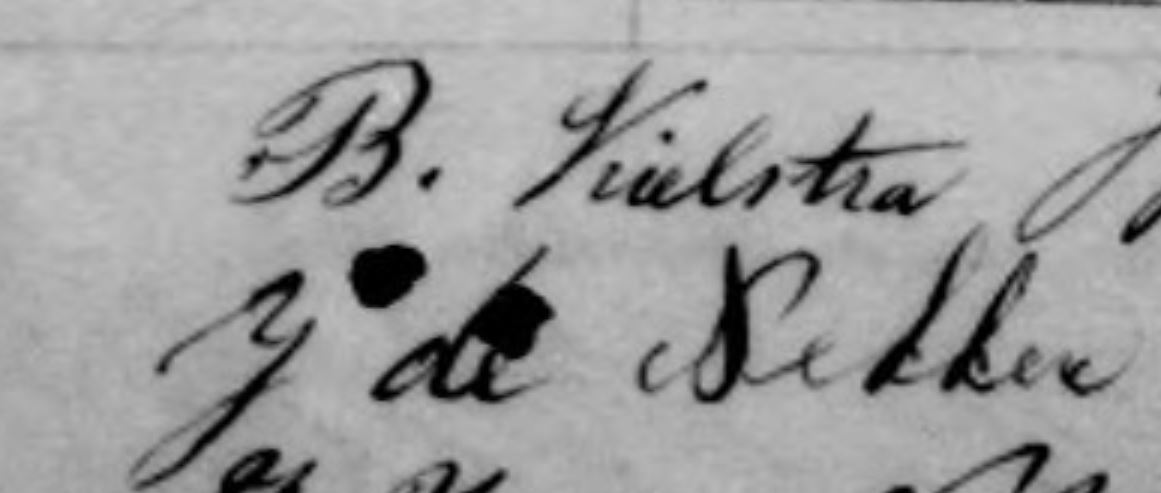 B. Kielstra
Y de Nekker